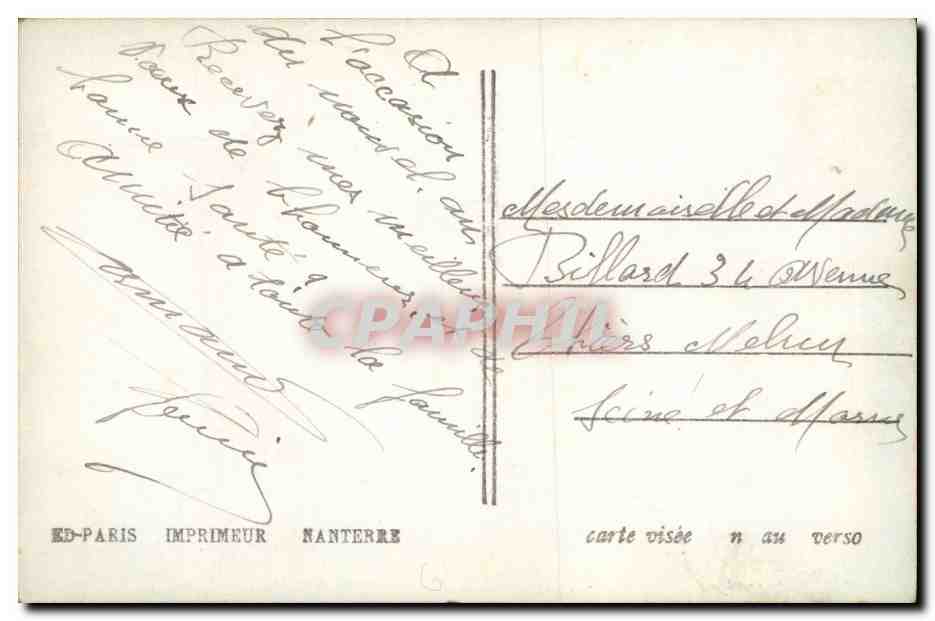 A
l'occasion
du nouvel an
Recevez mes meilleurs
Vœux de bonheur et de
bonne Santé &
Amitié a toute la famille.
Mesdemoiselle et Madame
Billard 34 Avenue
Thiers Melun
Seine et Marne
CPAPHIL
ED-PARIS IMPRIMEUR NANTERRE
carte visée n au verso